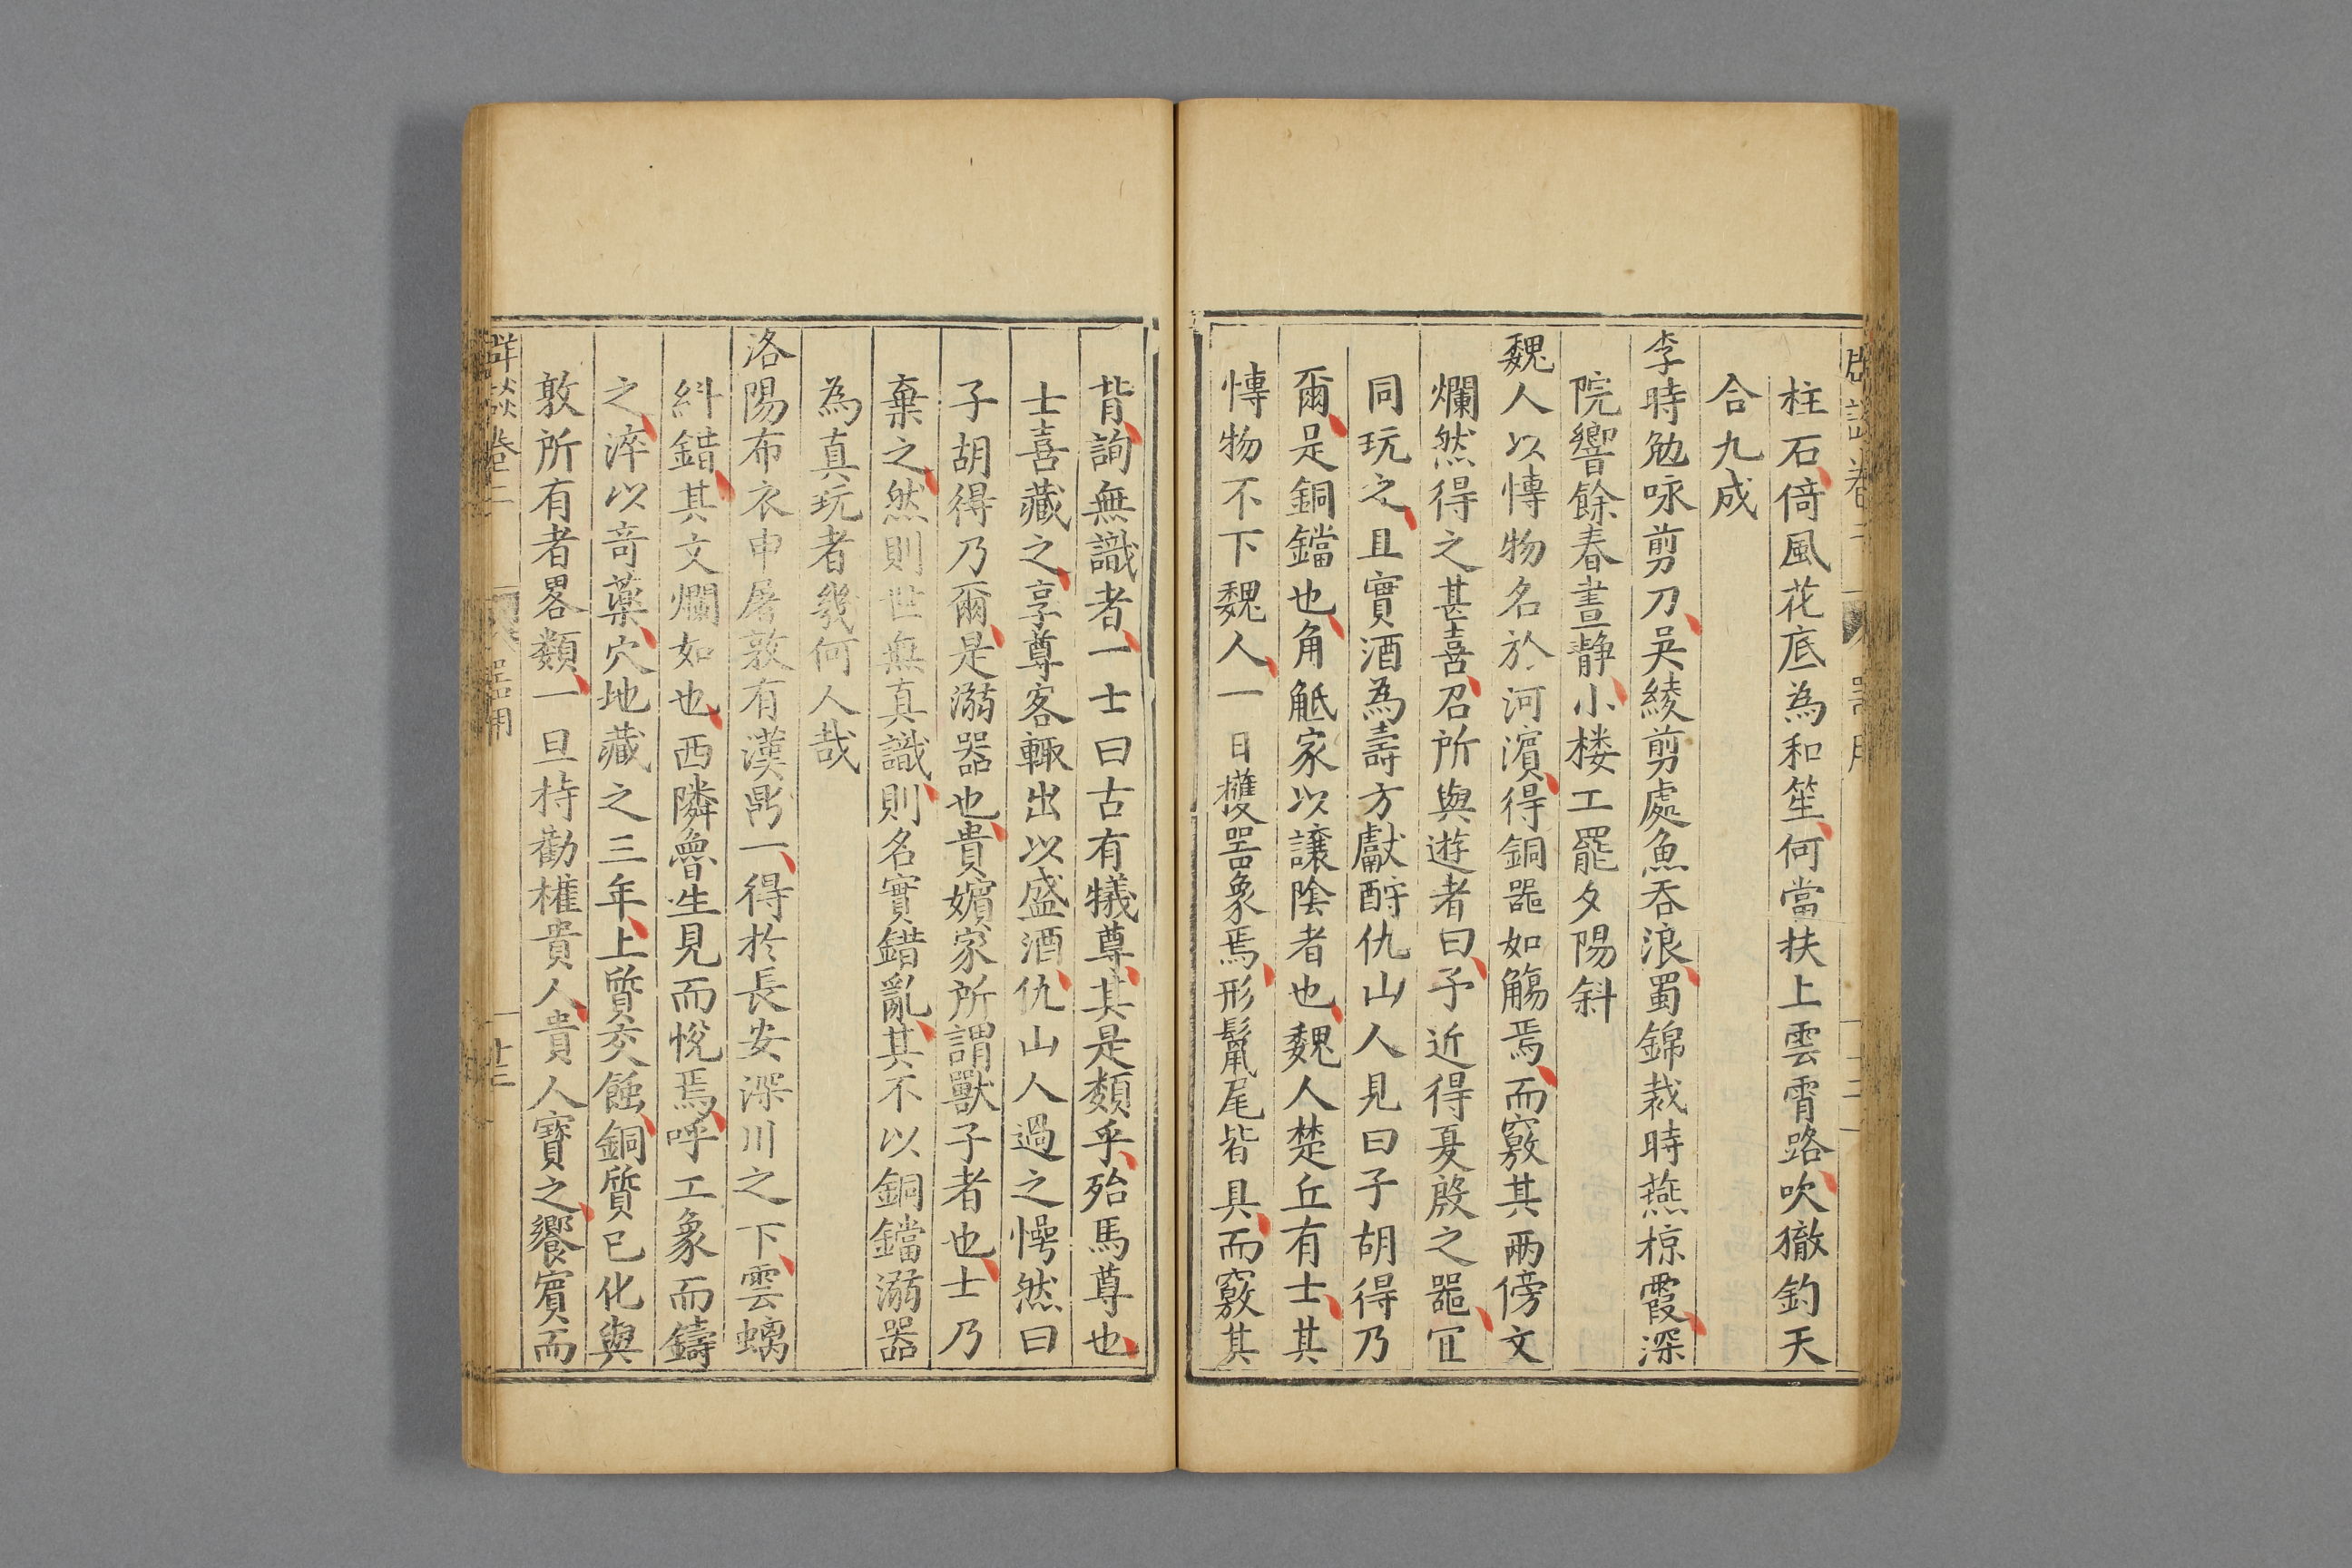 柱石倚風花底為和笙何當扶上雲霄路吹徹鈞天
合九成
李時勉咏剪刀吳綾剪處魚吞浪蜀錦裁時燕掠霞深
院響餘春晝静小楼工罷夕陽斜
魏人以愽物名於河濵得銅噐如觴焉而竅其兩傍文
爛然得之甚喜召所與遊者曰予近得夏殷之噐宜
同玩之且實酒為壽方獻酧仇山人見曰子胡得乃
爾是銅鐺也角觝家以護陰者也魏人楚丘有士其
愽物不下魏人一日獲噐象焉形鬛尾皆具而竅其
背詢無識者一士曰古有犧尊其是類乎殆馬尊也
士喜藏之享尊客輙出以盛酒仇山人過之愕然曰
子胡得乃爾是溺器也貴嬪家所謂獸子者也士乃
棄之然則世無真識則名實錯亂其不以銅鐺溺器
為真玩者幾何人哉
洛陽布衣申屠敦有漢鼎一得於長安深川之下雲螭
糾錯其文爛如也西隣魯生見而悦焉呼工象而鑄
之淬以竒藥穴地藏之三年上質交蝕銅質已化與
敦所有者畧類一旦持勸權貴人貴人寳之饗賓而
群談卷二
噐用
十三